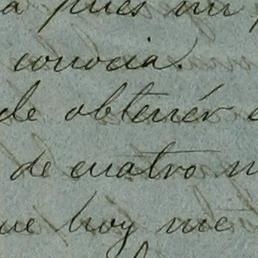 a pues mi
conocia.
de obtener
de cuatro
que hoy me